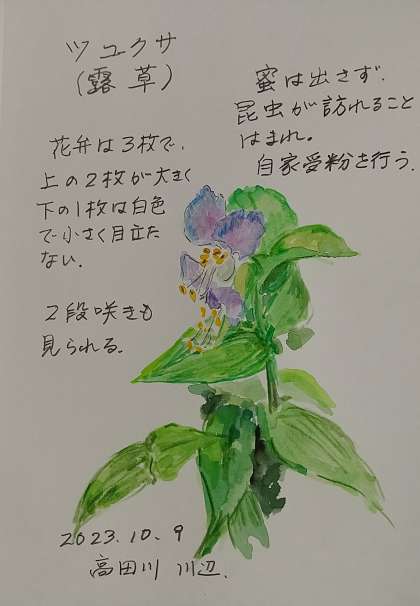 ツユクサ
(露草)
花弁は3枚で、
上の2枚が大きく
下の1枚は白色
で小さく目立た
ない。
2段咲きも
見られる。
蜜は出さず、
昆虫が訪れること
はまれ。
自家受粉を行う。
2023.10.9
高田川 川辺.